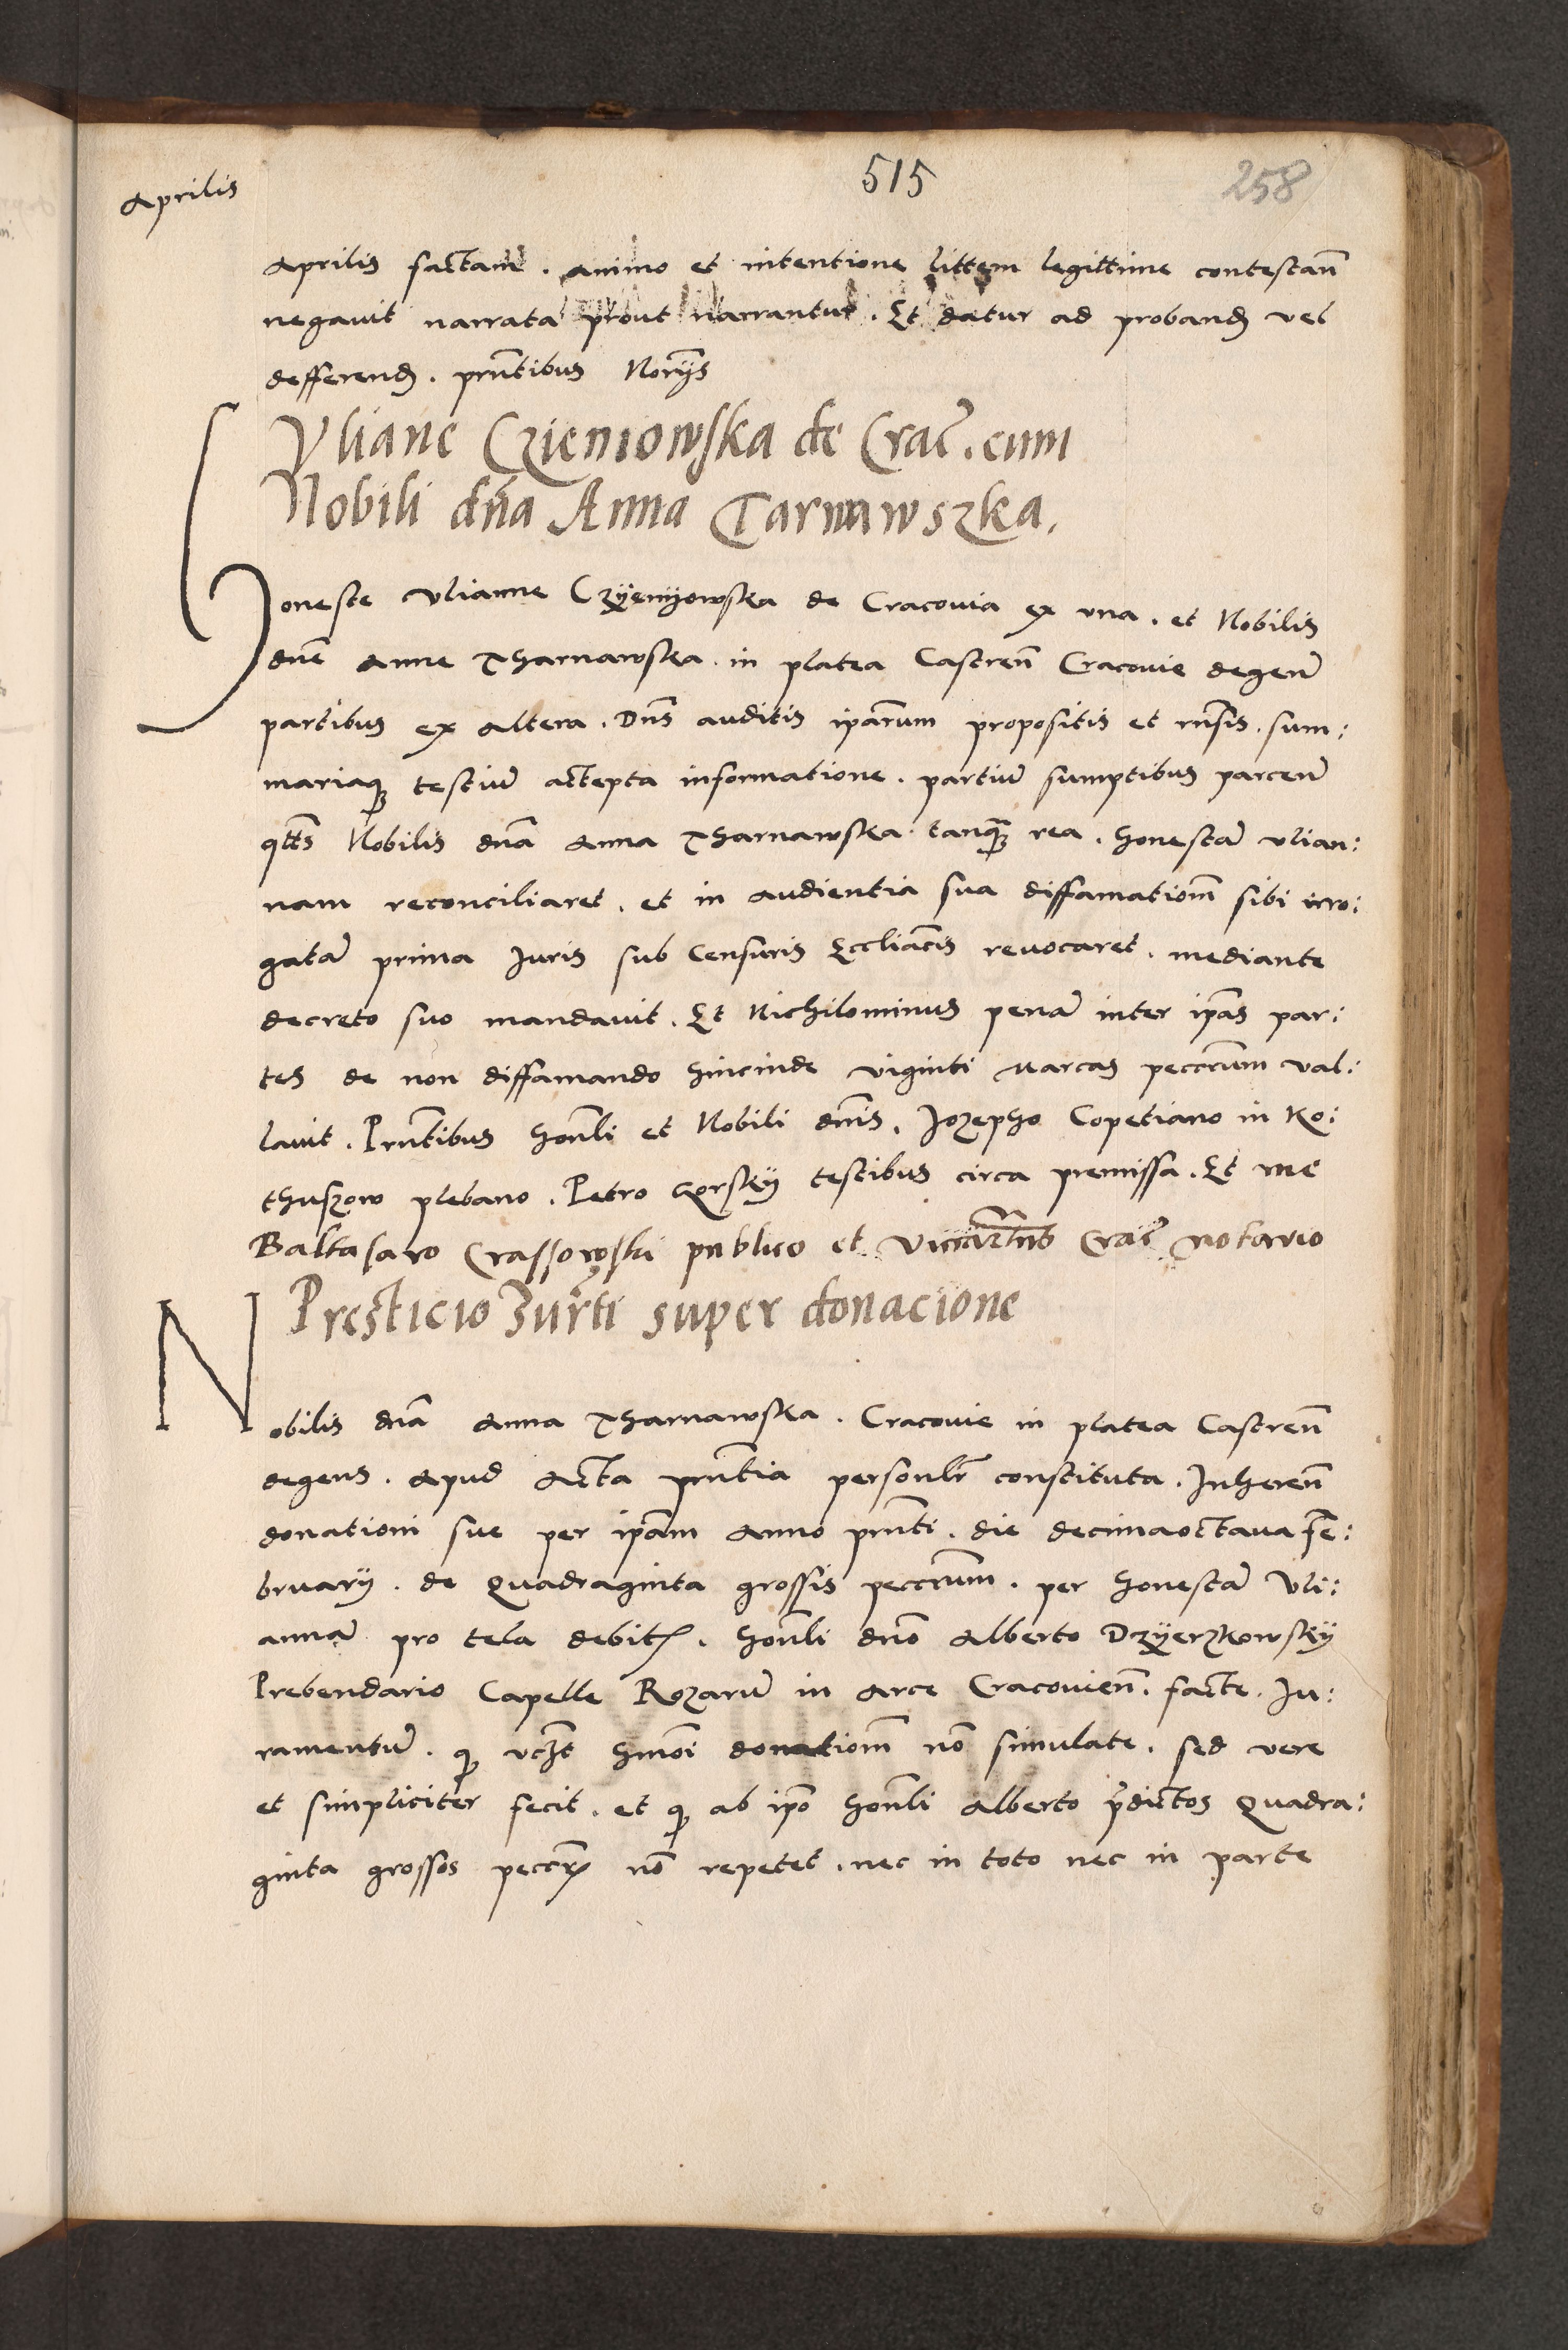 515
258
Aprilis
Aprilis factam . animo et intentione littem legittime contestan̄
negavit narrata prout narrantur . Et datur ad proband vel
defferend . pn̄tibus Norÿs
Vliane Czieniowska de Crac̄ . cum
Nobili dn̄a Anna Tarnawszka .
Honeste Vlianne Czÿenÿowska de Cracouia ex vna . et Nobilis
dnē Anne Tharnawska . in platea Castren̄ Cracouie degen̄
partibus ex altera . Dn̄s auditis ipārum propositis et rn̄sis . sum:
mariaq testiū accepta informatione . partiū sumptibus parcen̄
qtt̄s Nobilis dnā Anna Tharnawska tanq̄ rea . honestā Vlian:
nam reconciliaret . et in audientia sua diffamationm̄ sibi irro:
gatā prima Iuris sub Censuris Eccliācis reuocaret . mediante
decreto suo mandauit . Et Nichilominus penā inter ipās par:
tes de non diffamando hincinde viginti Marcas peccrum̄ val:
lauit . Pn̄tibus hon̄li et Nobili dn̄is . Jozepho Copetiano in Ko:
thuszow plebano . Petro Gorskÿ testibus circa premissa . Et me
Baltasaro Crassowski publico et Crac̄ notario
Presticio Iurn̄ti super donacione
Nobilis dnā Anna Tharnawska . Cracouie in platea Castren̄
degens . apud Acta pn̄tia personlr̄ constituta . Inheren̄
donationi sue per ipām Anno pn̄ti . die decimaoctaua fe:
bruarÿ . de Quadraginta grossis peccrum̄ . per honestā Vli:
annā pro tela debit . hon̄li dnō Alberto Dzÿerzkowskÿ
Prebendario Capelle Rozarū in Arce Cracouien̄ . facte . Iu:
ramentū . q vcz̄t hm̄oi donationm̄ nō simulate . sed vere
et simpliciter fecit . et q ab ipō hon̄li Alberto p̄dictos Quadra:
ginta grossos peccr̄ nō repetet . nec in toto nec in parte